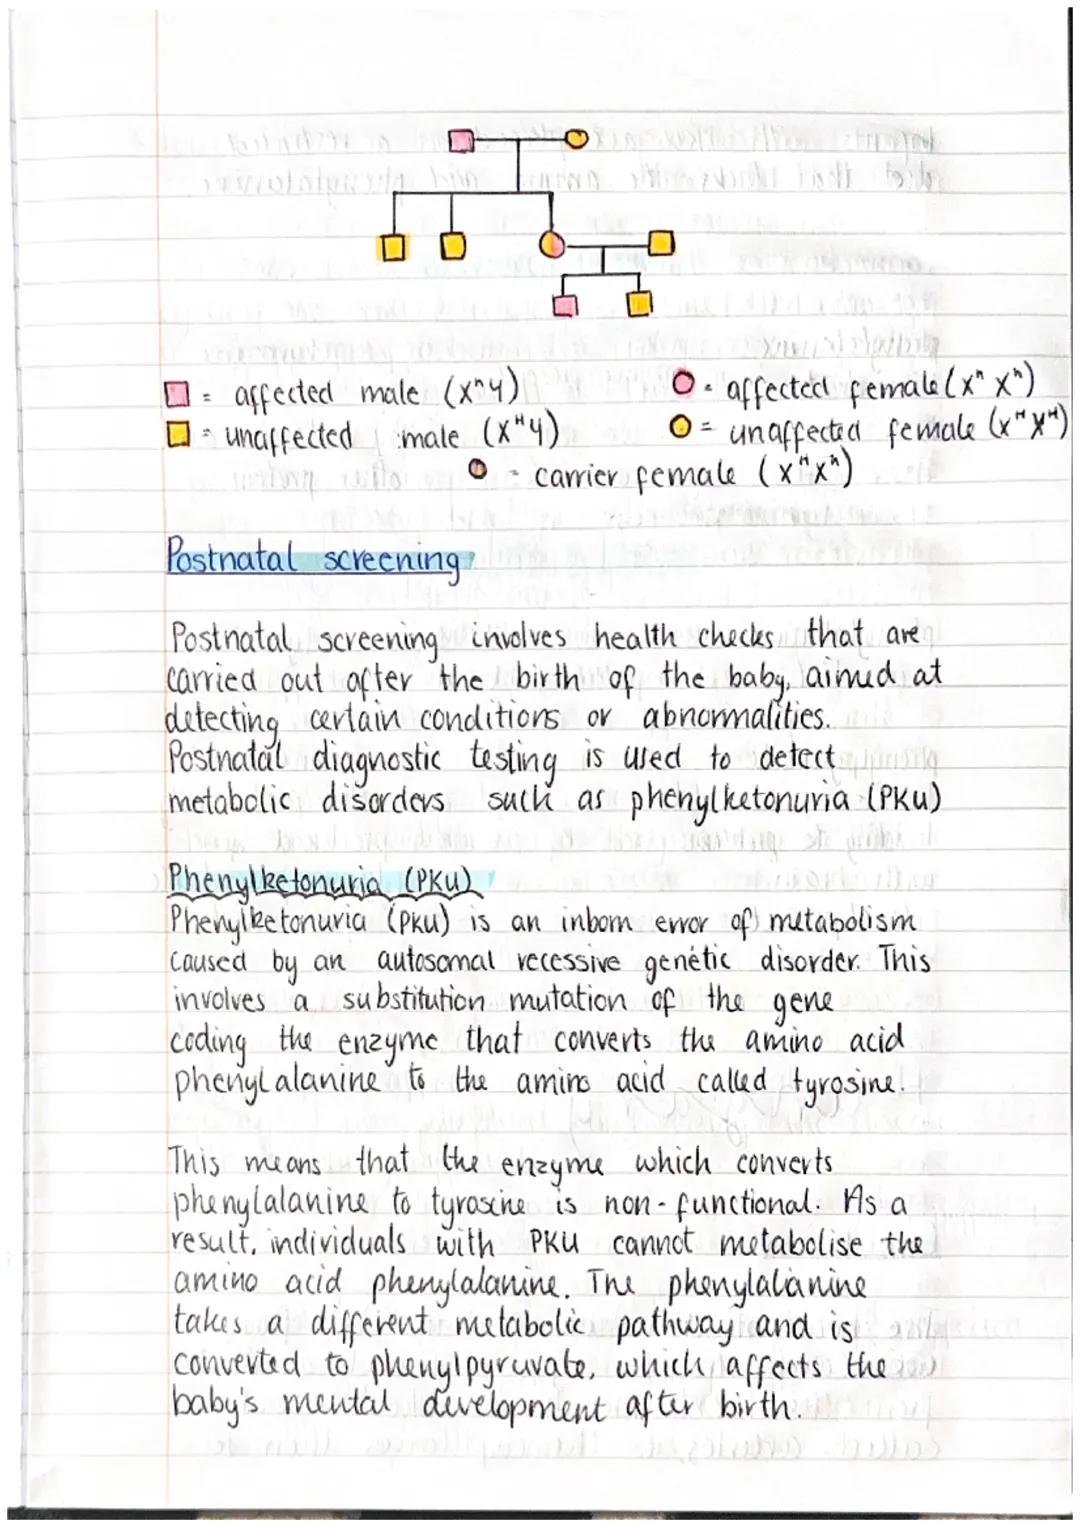 = affected male (xʰy)
= affected female (xʰ xʰ)
= unaffected male (xᴴy)
= unaffected female (xᴴxᴴ)
= carrier female (xᴴxʰ)
Postnatal screening
Postnatal screening involves health checks that are
carried out after the birth of the baby, aimed at
detecting certain conditions or abnormalities.
Postnatal diagnostic testing is used to detect
metabolic disorders such as phenylketonuria (PKU)
Phenylketonuria (PKU)
Phenylketonuria (PKU) is an inborn error of metabolism
caused by an autosomal recessive genetic disorder. This
involves a substitution mutation of the gene
coding the enzyme that converts the amino acid
phenylalanine to the amino acid called tyrosine.
This means that the enzyme which converts
phenylalanine to tyrosine is non-functional. As a
result, individuals with PKU cannot metabolise the
amino acid phenylalanine. The phenylalanine
takes a different metabolic pathway and is
converted to phenylpyruvate, which affects the
baby's mental development after birth.